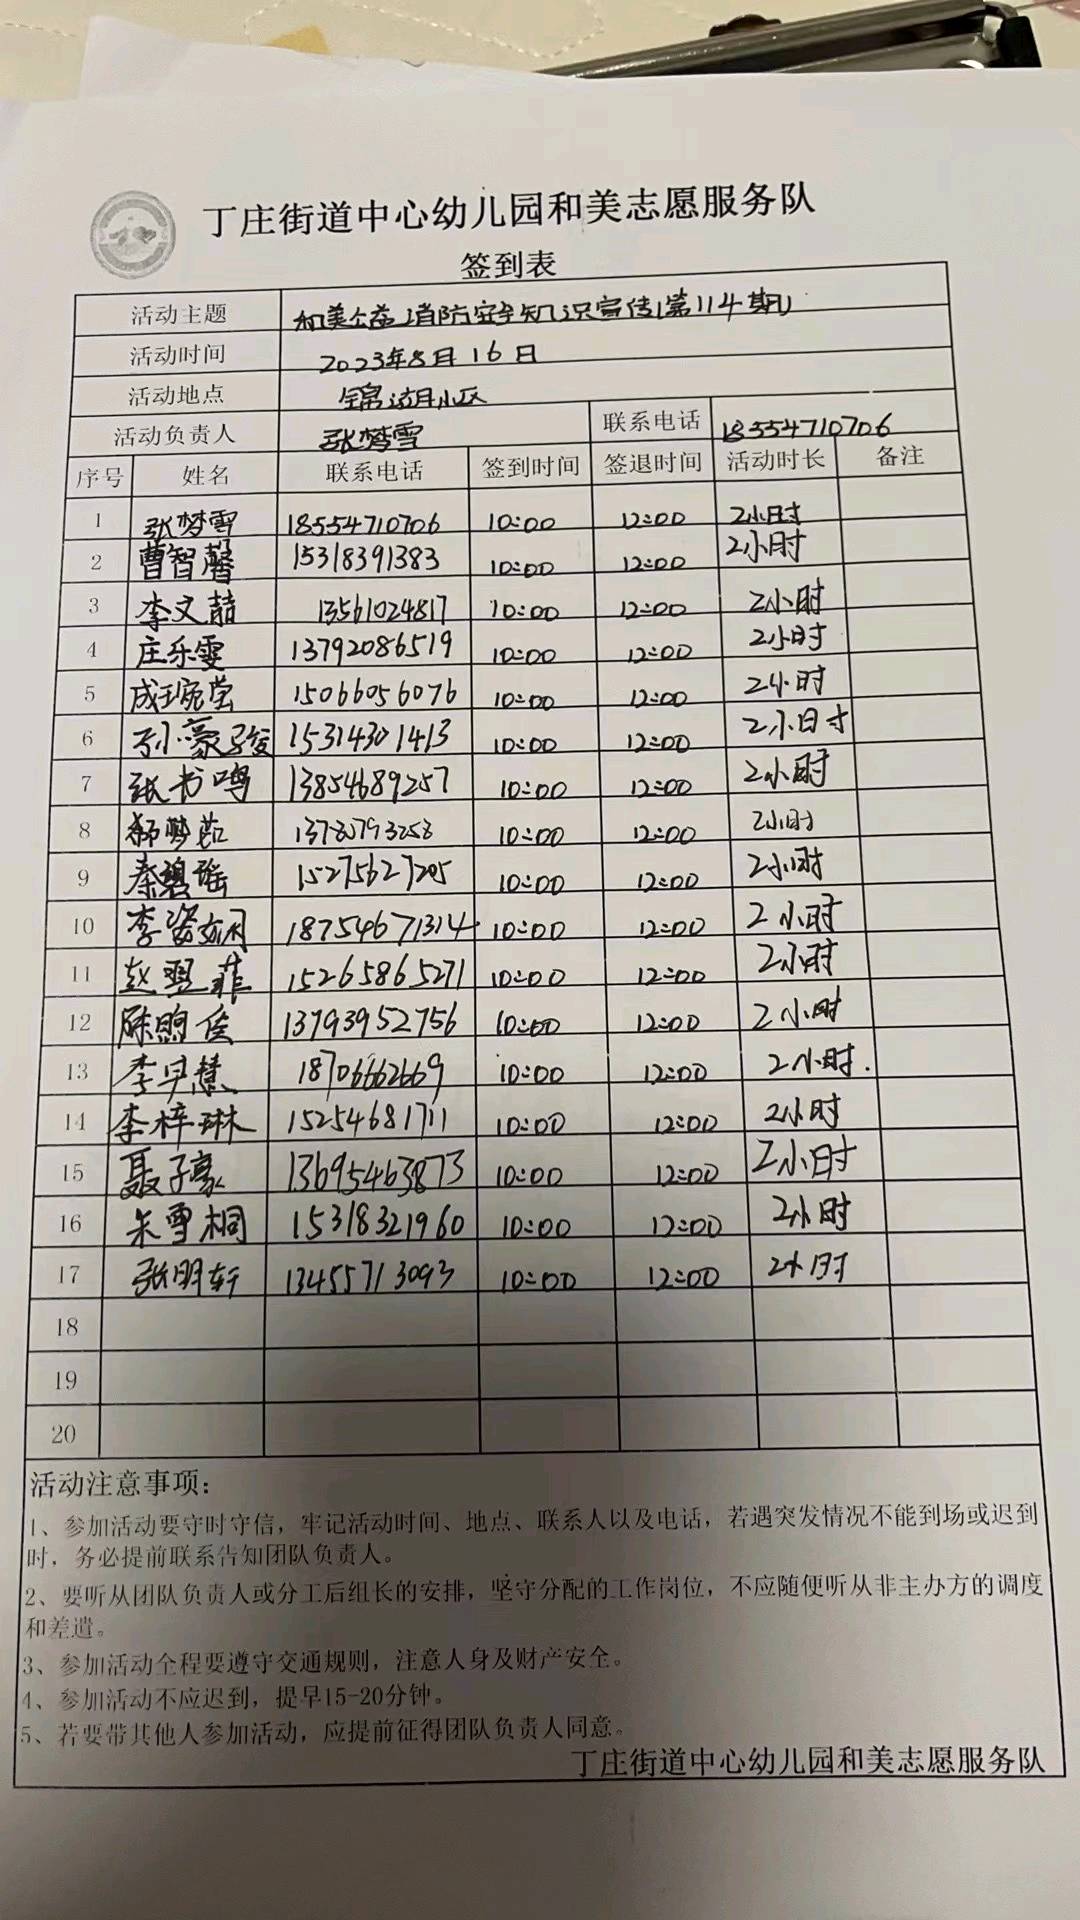 丁庄街道中心幼儿园和美志愿服务队
签到表
活动主题 和美公益消防安全知识宣传(第114期)
活动时间 2023年8月16日
活动地点 锦湖小区
活动负责人 张梦雪 联系电话 18554710706
序号 姓名 联系电话 签到时间 签退时间 活动时长 备注
1 张梦雪 18554710706 10:00 12:00 2小时
2 曹智馨 15318391383 10:00 12:00 2小时
3 李文喆 13561024817 10:00 12:00 2小时
4 庄乐雯 13792086519 10:00 12:00 2小时
5 成琬莹 15066056076 10:00 12:00 2小时
6 孙豪骏 15314301413 10:00 12:00 2小时
7 张书鸣 13854689257 10:00 12:00 2小时
8 梦茹 10:00 12:00 2小时
9 秦碧瑶 15275627205 10:00 12:00 2小时
10 李姿娴 18754671314 10:00 12:00 2小时
11 赵翌菲 15265865271 10:00 12:00 2小时
12 陈煦俊 13793952756 10:00 12:00 2小时
13 李早慧 18706662669 10:00 12:00 2小时.
14 李梓琳 15254681711 10:00 12:00 2小时
15 聂子豪 13695463873 10:00 12:00 2小时
16 朱雪桐 15318321960 10:00 12:00 2小时
17 张明轩 13455713093 10:00 12:00 2小时
18
19
20
活动注意事项：
1、参加活动要守时守信，牢记活动时间、地点、联系人以及电话，若遇突发情况不能到场或迟到
时，务必提前联系告知团队负责人。
2、要听从团队负责人或分工后组长的安排，坚守分配的工作岗位，不应随便听从非主办方的调度
和差遣。
3、参加活动全程要遵守交通规则，注意人身及财产安全。
4、参加活动不应迟到，提早15-20分钟。
5、若要带其他人参加活动，应提前征得团队负责人同意。
丁庄街道中心幼儿园和美志愿服务队